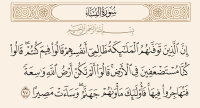 سُورَةُ النِّسَاءِ
إِنَّ الَّذِينَ تَوَفَّاهُمُ الْمَلَائِكَةُ ظَالِمِي أَنْفُسِهِمْ قَالُوا فِيمَ كُنْتُمْ قَالُوا
كُنَّا مُسْتَضْعَفِينَ فِي الْأَرْضِ قَالُوا أَلَمْ تَكُنْ أَرْضُ اللَّهِ وَاسِعَةً
فَتُهَاجِرُوا فِيهَا فَأُولَئِكَ مَأْوَاهُمْ جَهَنَّمُ وَسَاءَتْ مَصِيرًا ٩٧